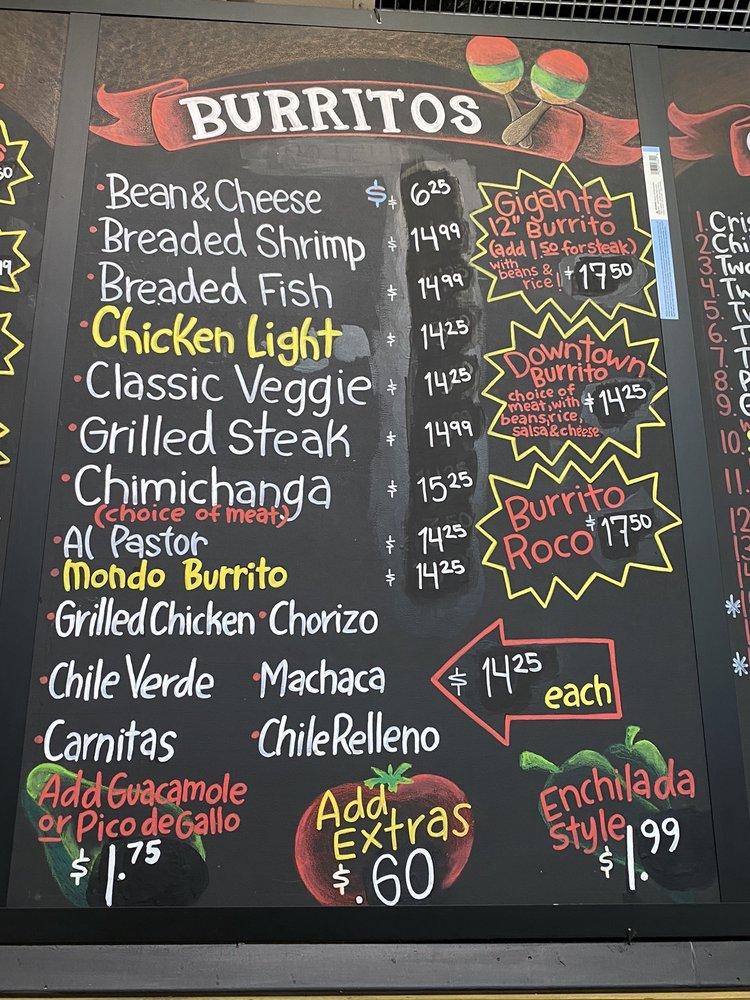 BURRITOS
• Bean & Cheese $ 6 25
• Breaded Shrimp $ 14 99
• Breaded Fish $ 14 99
• Chicken Light $ 14 25
• Classic Veggie $ 14 25
• Grilled Steak $ 14 99
• Chimichanga $ 15 25
(choice of meat)
• Al Pastor $ 14 25
• Mondo Burrito $ 14 25
• Grilled Chicken • Chorizo
• Chile Verde • Machaca
• Carnitas • Chile Relleno
$ 14 25
each
Gigante
12" Burrito
(add 1 50 for steak)
with
beans &
rice!
$ 17 50
Downtown
Burrito
choice of
meat, with
beans, rice,
salsa & cheese
$ 14 25
Burrito
Roco $ 17 50
Add Guacamole
or Pico de Gallo
$ 1.75
Add
Extras
$ .60
Enchilada
Style
$ 1.99
1.
2.
3.
4.
5.
6.
7.
8.
9.
10.
11.
12
13
14
*
*